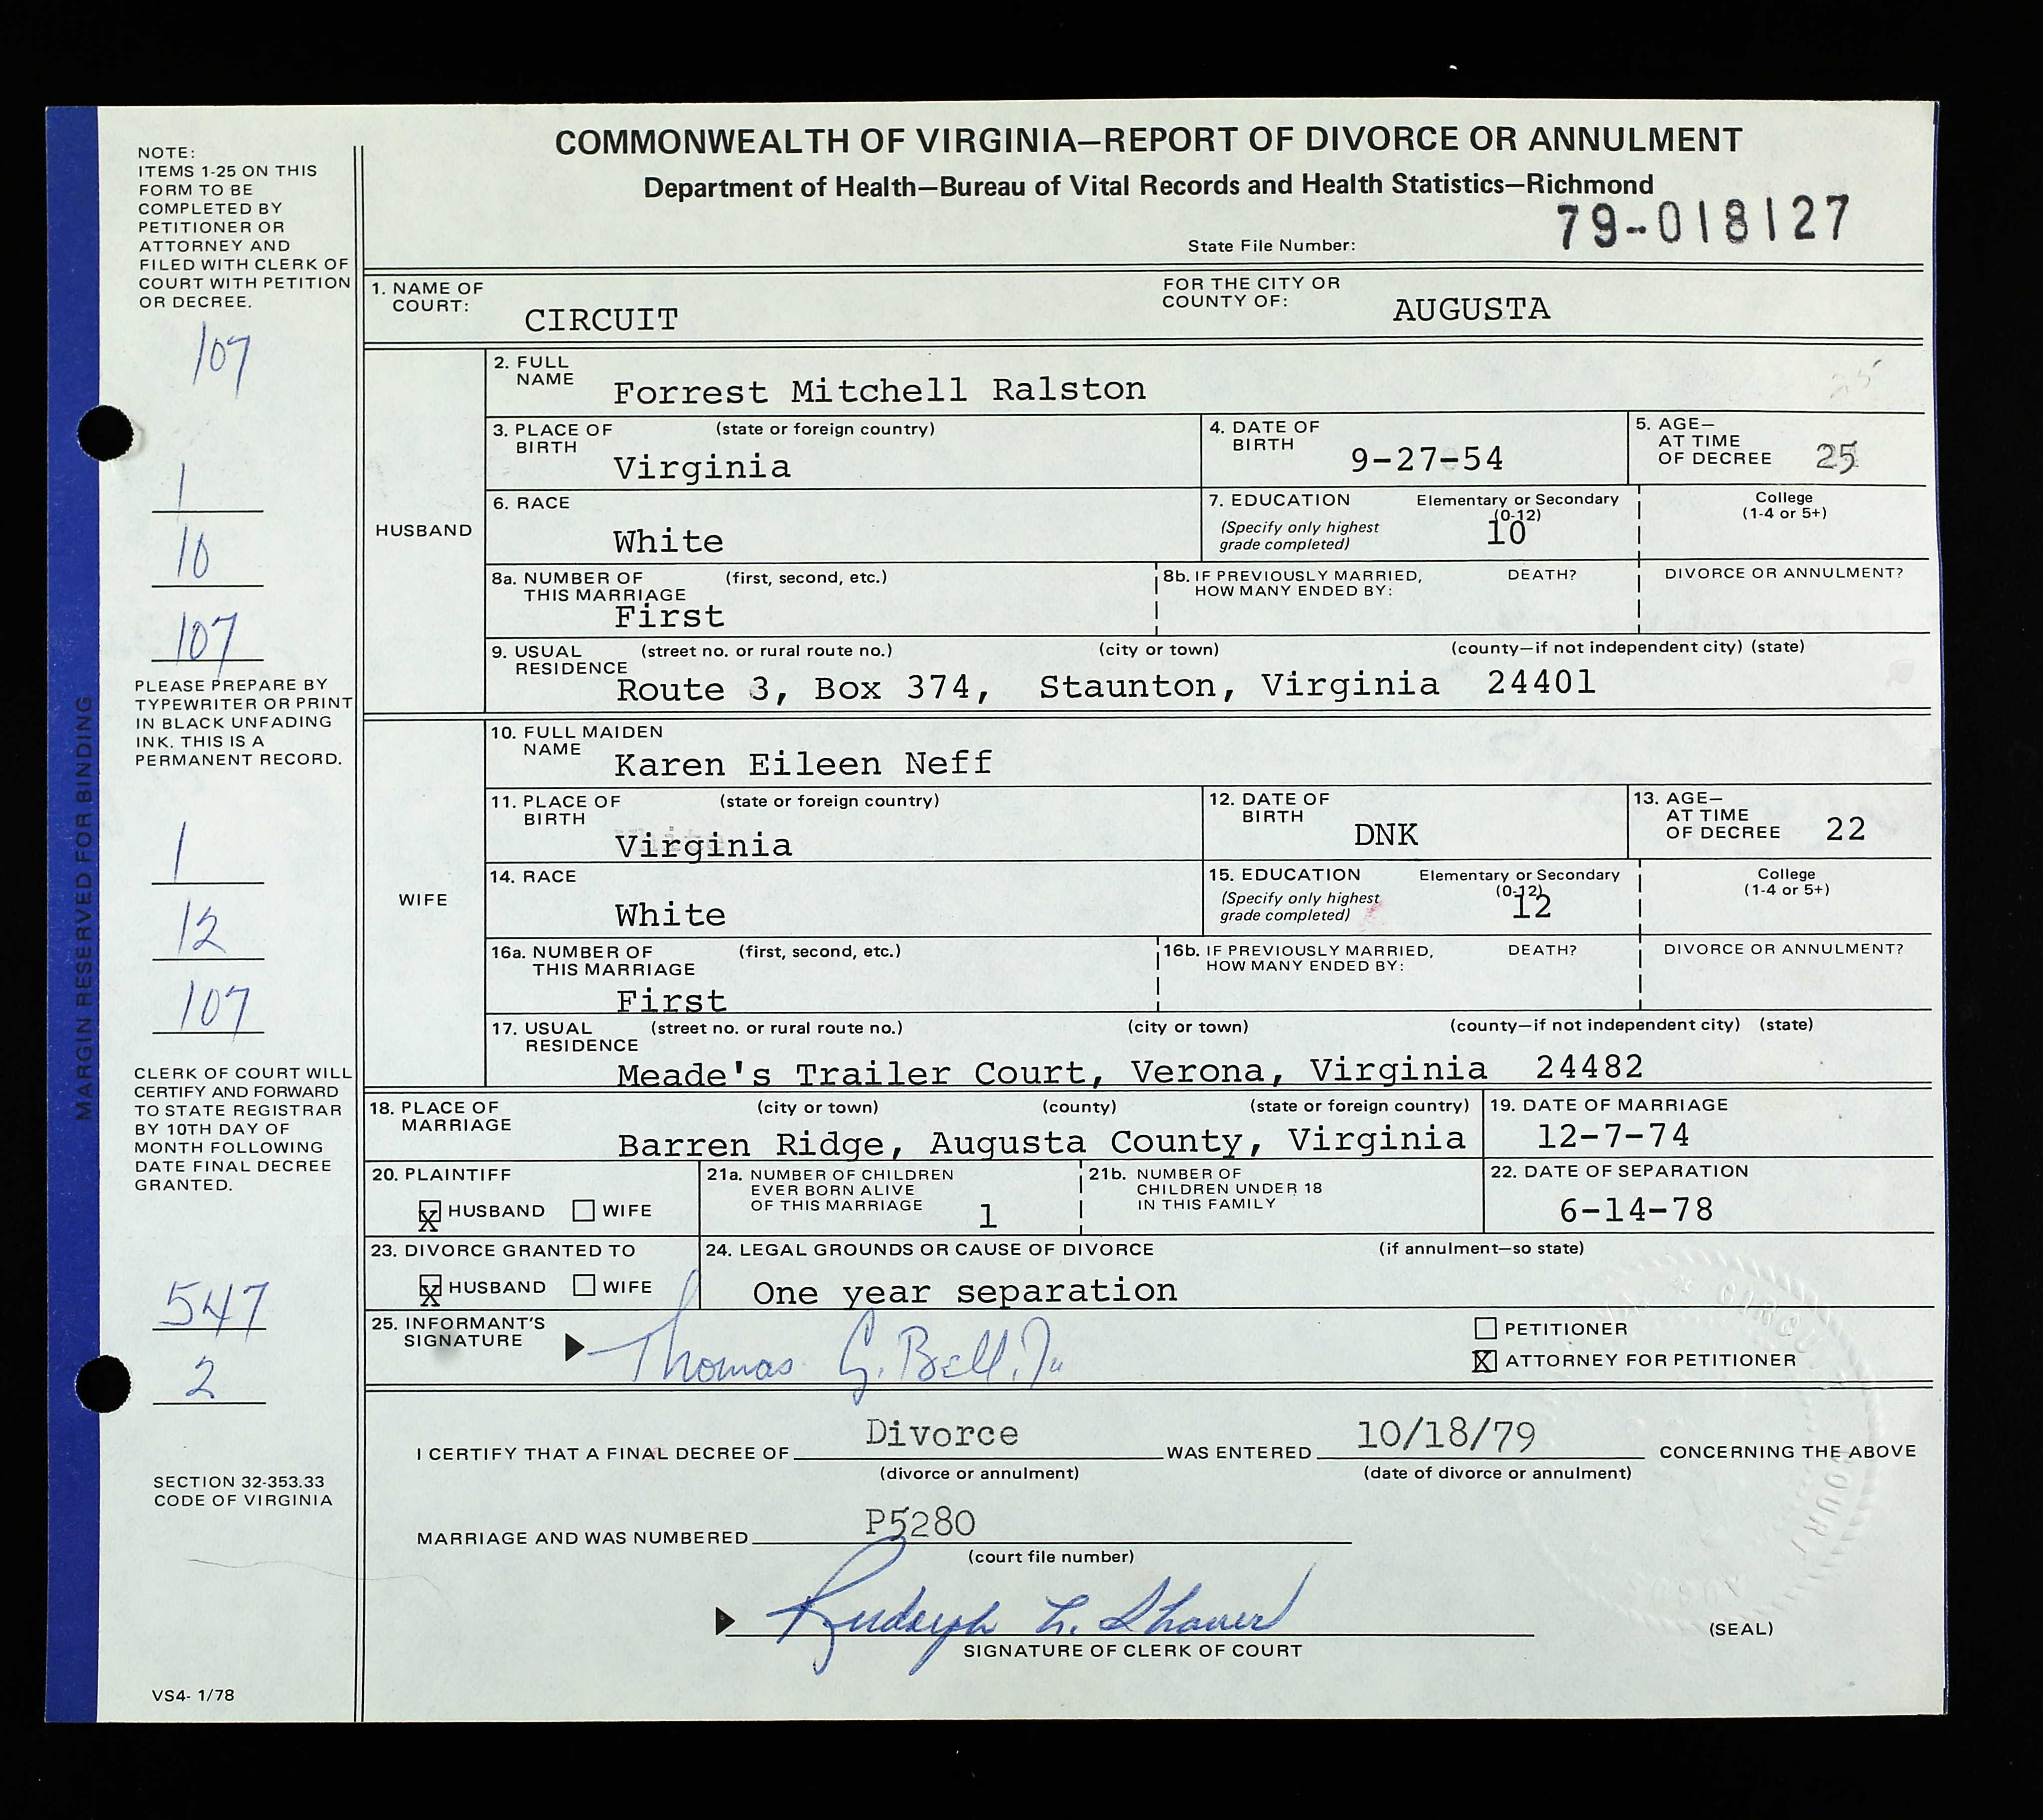 COMMONWEALTH OF VIRGINIA—REPORT OF DIVORCE OR ANNULMENT
Department of Health—Bureau of Vital Records and Health Statistics—Richmond
State File Number: 79-018127
NOTE:
ITEMS 1-25 ON THIS
FORM TO BE
COMPLETED BY
PETITIONER OR
ATTORNEY AND
FILED WITH CLERK OF
COURT WITH PETITION
OR DECREE.
107
1
10
107
PLEASE PREPARE BY
TYPEWRITER OR PRINT
IN BLACK UNFADING
INK. THIS IS A
PERMANENT RECORD.
1
12
107
CLERK OF COURT WILL
CERTIFY AND FORWARD
TO STATE REGISTRAR
BY 10TH DAY OF
MONTH FOLLOWING
DATE FINAL DECREE
GRANTED.
547
2
SECTION 32-353.33
CODE OF VIRGINIA
VS4- 1/78
MARGIN RESERVED FOR BINDING
1. NAME OF COURT: CIRCUIT
FOR THE CITY OR COUNTY OF: AUGUSTA
HUSBAND
2. FULL NAME Forrest Mitchell Ralston
25
3. PLACE OF BIRTH (state or foreign country) Virginia
4. DATE OF BIRTH 9-27-54
5. AGE— AT TIME OF DECREE 25
6. RACE White
7. EDUCATION (Specify only highest grade completed) Elementary or Secondary (0-12) 10
College (1-4 or 5+)
8a. NUMBER OF THIS MARRIAGE (first, second, etc.) First
8b. IF PREVIOUSLY MARRIED, HOW MANY ENDED BY: DEATH? DIVORCE OR ANNULMENT?
9. USUAL RESIDENCE (street no. or rural route no.) (city or town) (county—if not independent city) (state)
Route 3, Box 374, Staunton, Virginia 24401
WIFE
10. FULL MAIDEN NAME Karen Eileen Neff
11. PLACE OF BIRTH (state or foreign country) Virginia
12. DATE OF BIRTH DNK
13. AGE— AT TIME OF DECREE 22
14. RACE White
15. EDUCATION (Specify only highest grade completed) Elementary or Secondary (0-12) 12
College (1-4 or 5+)
16a. NUMBER OF THIS MARRIAGE (first, second, etc.) First
16b. IF PREVIOUSLY MARRIED, HOW MANY ENDED BY: DEATH? DIVORCE OR ANNULMENT?
17. USUAL RESIDENCE (street no. or rural route no.) (city or town) (county—if not independent city) (state)
Meade's Trailer Court, Verona, Virginia 24482
18. PLACE OF MARRIAGE (city or town) (county) (state or foreign country)
Barren Ridge, Augusta County, Virginia
19. DATE OF MARRIAGE 12-7-74
20. PLAINTIFF X HUSBAND WIFE
21a. NUMBER OF CHILDREN EVER BORN ALIVE OF THIS MARRIAGE 1
21b. NUMBER OF CHILDREN UNDER 18 IN THIS FAMILY
22. DATE OF SEPARATION 6-14-78
23. DIVORCE GRANTED TO X HUSBAND WIFE
24. LEGAL GROUNDS OR CAUSE OF DIVORCE (if annulment—so state)
One year separation
25. INFORMANT'S SIGNATURE Thomas G. Bell, Jr
PETITIONER
X ATTORNEY FOR PETITIONER
I CERTIFY THAT A FINAL DECREE OF Divorce WAS ENTERED 10/18/79 CONCERNING THE ABOVE
(divorce or annulment) (date of divorce or annulment)
MARRIAGE AND WAS NUMBERED P5280
(court file number)
Rudolph L. Shaver
SIGNATURE OF CLERK OF COURT
(SEAL)